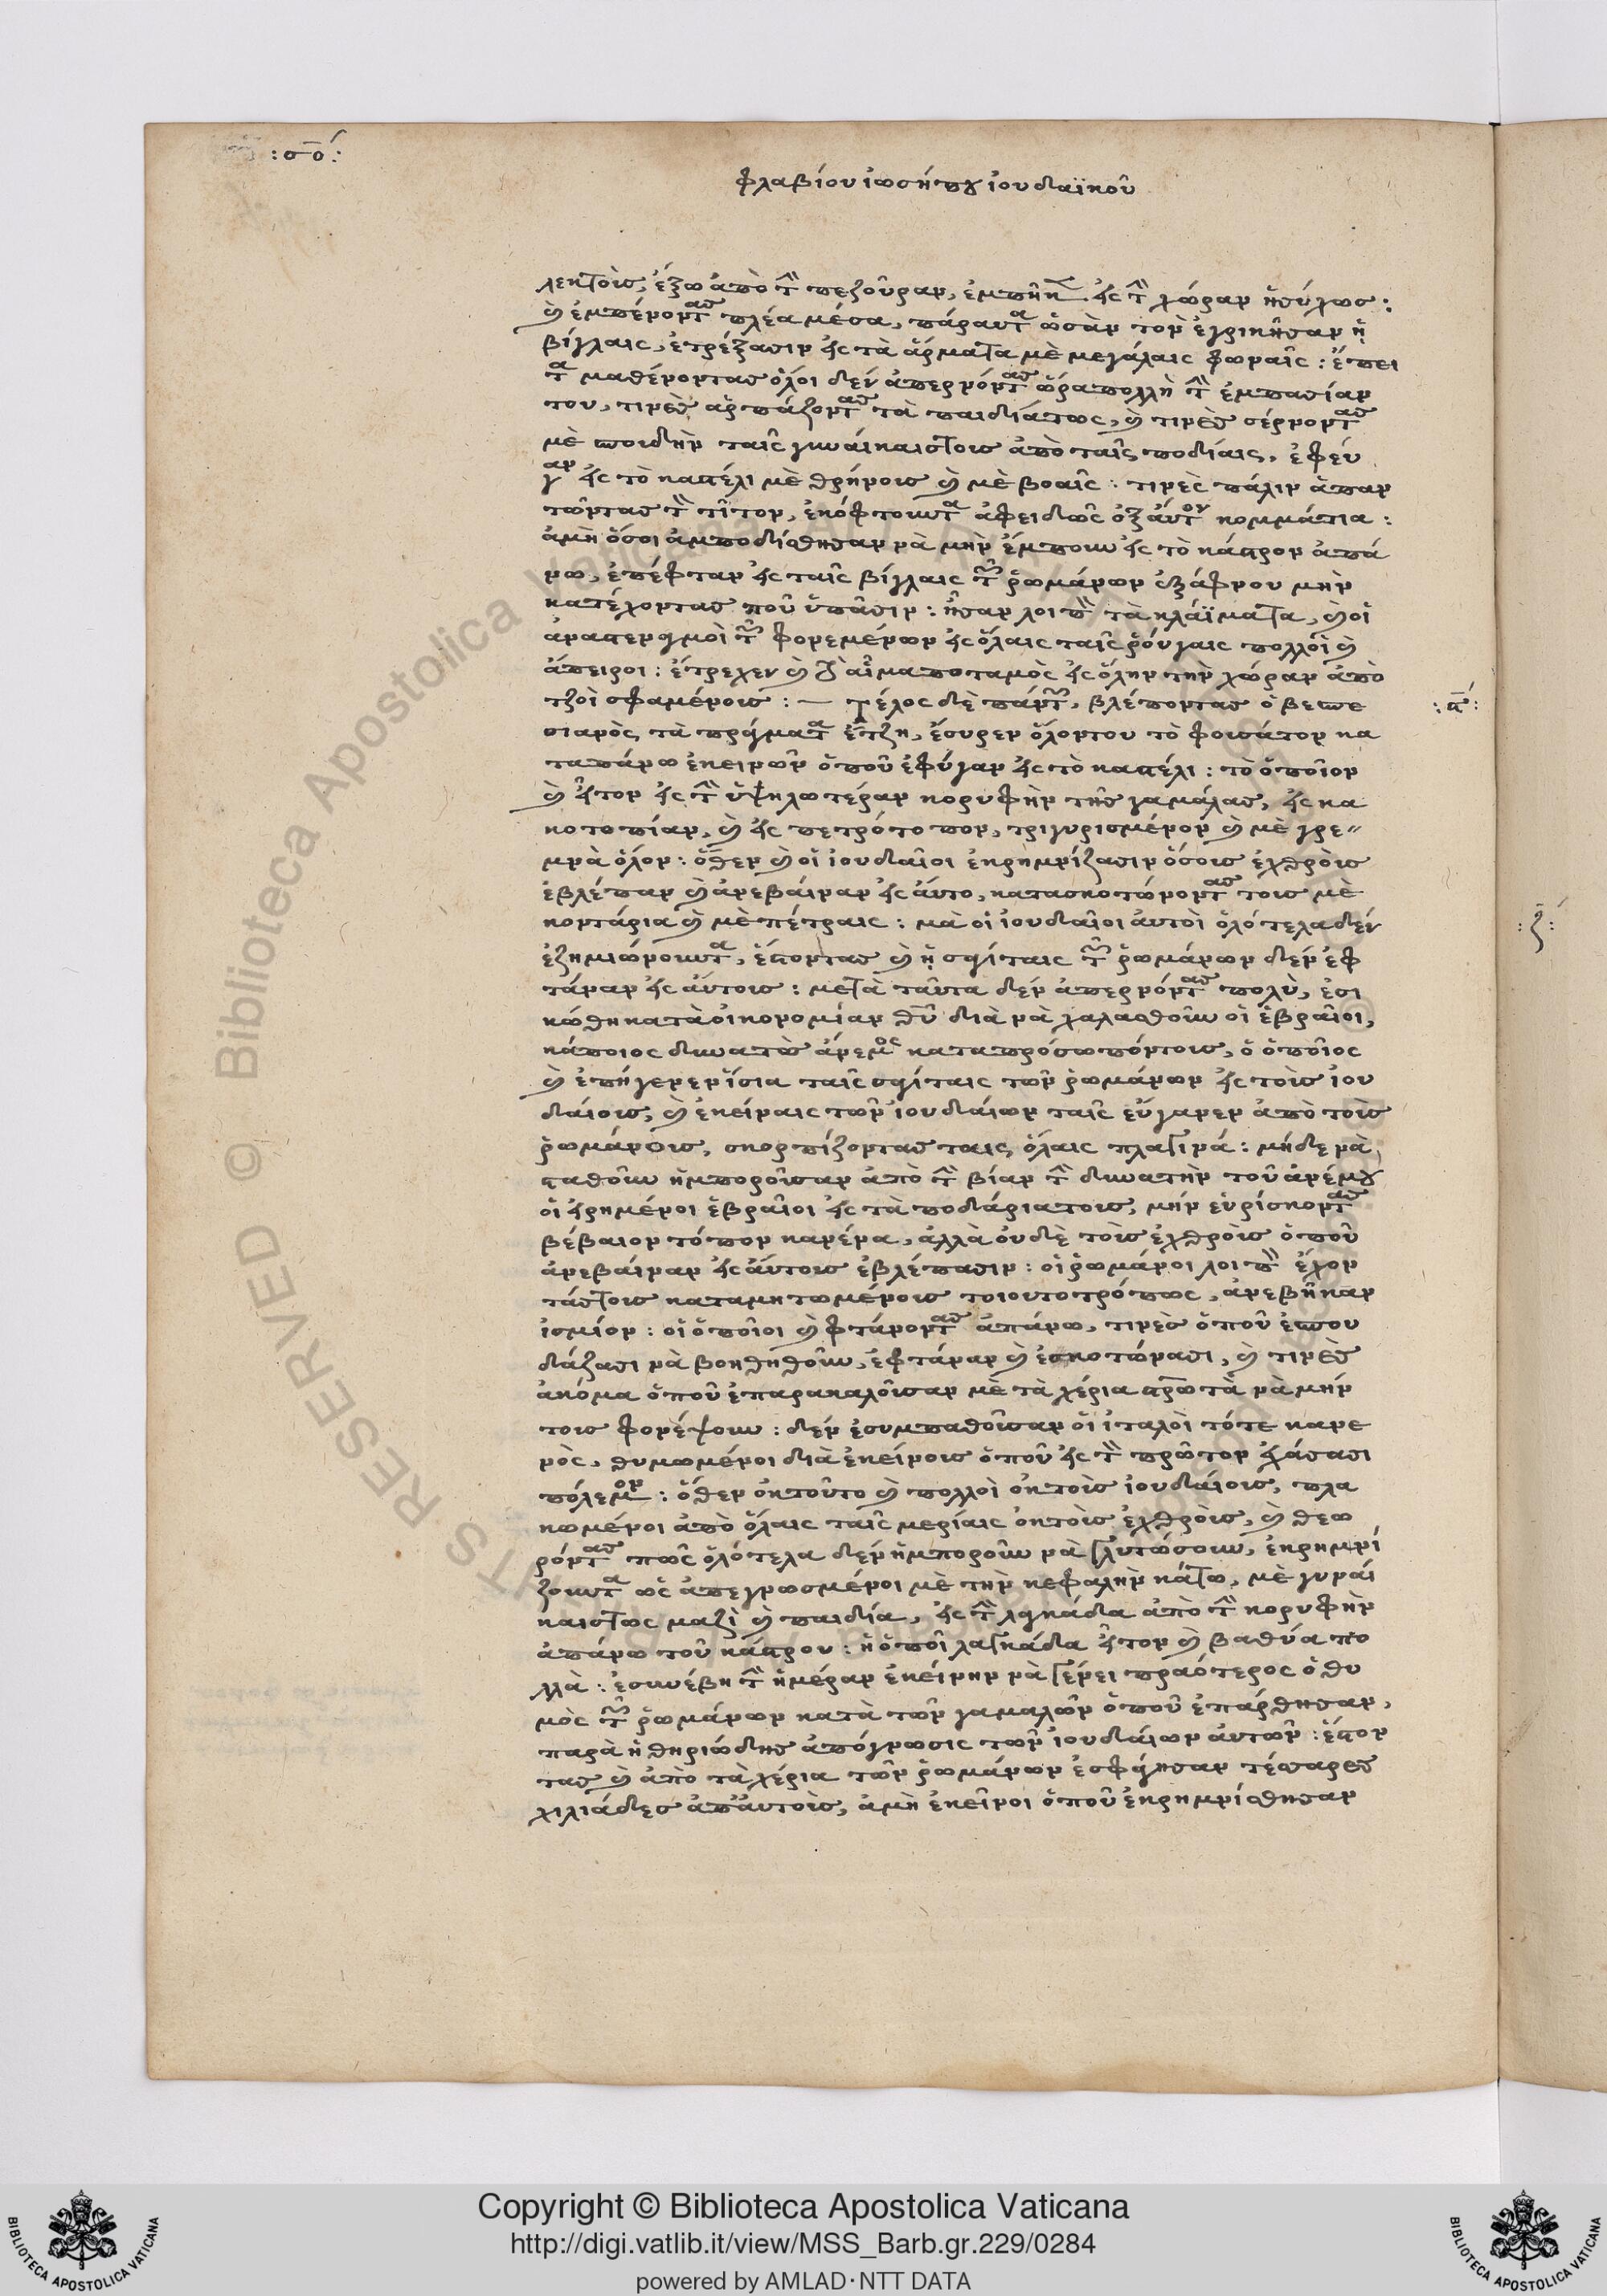 :σο:
φλαβίου ἰωσήπου ἰουδαϊκοῦ
λεκτοὺς, ἔξω ἀπὸ τὴν πεζούραν, ἐμπῆκεν εἰς τὴν χώραν ἡσύχως:
καὶ ἐμπένοντας πλέα μέσα, πάραυτα ὡσὰν τὸν ἐγρικῆσαν ᾑ
βίγλαις, ἐτρέξασιν εἰς τὰ ἄρματα μὲ μεγάλαις φωναῖς: ἔπει
τα μαθένοντας ὅλοι δὲν ἀπερνόντας ὥρα πολλὴ τὴν ἐμπασίαν
του, τινὲς ἁρπάζοντας τὰ παιδιάτως, καὶ τινὲς σέρνοντας
μὲ σποιδὴν ταῖς γυναίκαιστους ἀπὸ ταῖς ποδιαίς, ἐφεύ
γαν εἰς τὸ καστέλι μὲ θρήνους καὶ μὲ βοαῖς: τινὲς πάλιν ἀπαν
τῶντας τὸν τῖτον, ἐκόφτουντα ἀφειδῶς ὀξ αὐτὸν κομμάτια:
ἀμὴ ὅσοι ἀμποδίσθησαν νὰ μὴν ἔμπουν εἰς τὸ κάστρον ἀπά
νω, ἐπέφταν εἰς ταῖς βίγλαις τῶν ῥωμάνων ἐξάφνου μὴν
κατέχοντας ποῦ ὑπᾶσιν: ἦσαν λοιπὸν τὰ κλάϊματα, καὶ οἱ
ἀναστεναγμοὶ τῶν φονεμένων εἰς ὅλαις ταῖς ῥούγαις πολλοὶ καὶ
ἄπειροι: ἔτρεχεν καὶ τὸ αἷμα ποταμὸς εἰς ὅλην τὴν χώραν ἀπὸ
τζοὶ σφαμένους: — τέλος δὲ πάντων, βλέποντας ὁ βεσπε
σιανὸς τὰ πράγματα ἔτζη, ἔσυρεν ὅλοντου τὸ φουσάτον κα
ταπάνω ἐκεινῶν ὁποῦ ἐφύγαν εἰς τὸ καστέλι: τὸ ὁποῖον
καὶ ἦτον εἰς τὴν ὑψηλωτέραν κορυφὴν τῆς γαμάλας, εἰς κα
κοτοπίαν, καὶ εἰς πετρότοπον, τριγυρισμένον καὶ μὲ γρε
μνὰ ὅλον: ὅθεν καὶ οἱ ἰουδαῖοι ἐκρημνίζασιν ὅσους ἐχθροὺς
ἐβλέπαν καὶ ἀνεβαίναν εἰς αὐτο, κατασκοτώνοντας τους μὲ
κοντάρια καὶ μὲ πέτραις: μὰ οἱ ἰουδαῖοι αὐτοὶ ὁλότελα δὲν
ἐζημιώνουντα, ἔστοντας καὶ ᾑ σαΐταις τῶν ῥωμάνων δὲν ἐφ
τάναν εἰς αὐτους: μετὰ ταῦτα δὲν ἀπερνόντας πολὺ, ἐσι
κώθη κατὰ οἰκονομίαν θεοῦ διὰ νὰ χαλασθοῦν οἱ ἑβραῖοι,
κάποιος δυνατὸς ἄνεμος καταπρόσωπόντους, ὁ ὁποῖος
καὶ ἐπήγενεν ἴσια ταῖς σαΐταις τῶν ῥωμάνων εἰς τοὺς ἰου
δαίους, καὶ ἐκείναις τῶν ἰουδαίων ταῖς εὔγανεν ἀπὸ τοὺς
ῥωμάνους, σκορπίζοντας ταις ὅλαις πλαγινά: μήδε νὰ
σταθοῦν ἠμποροῦσαν ἀπὸ τὴν βίαν τὴν δυνατὴν τοῦ ἀνέμου
οἱ εἰρημένοι ἑβραῖοι εἰς τὰ ποδάριατους, μὴν εὑρίσκοντας
βέβαιον τόπον κανένα, ἀλλὰ οὐδὲ τοὺς ἐχθροὺς ὁποῦ
ἀνεβαίναν εἰς αὐτους ἐβλέπασιν: οἱ ῥωμάνοι λοιπὸν ἔχον
τάστους καταμητωμένους τοιουτοτρόπως, ἀνεβῆκαν
ἰσμίον: οἱ ὁποῖοι καὶ φτάνοντας ἀπάνω, τινὲς ὁποῦ ἐσπου
δάζασι νὰ βοηθηθοῦν, ἐφτάναν καὶ ἐσκοτώνασι, καὶ τινὲς
ἀκόμα ὁποῦ ἐπαρακαλοῦσαν μὲ τὰ χέρια σταυρωτὰ νὰ μὴν
τους φονέψουν: δὲν ἐσυμπαθοῦσαν οἱ ἰταλοὶ τότε κανε
νὸς, θυμωμένοι διὰ ἐκείνους ὁποῦ εἰς τὸν πρῶτον ἐχάσασι
πόλεμον: ὅθεν ὀκ τοῦτο καὶ πολλοὶ ὀκ τοὺς ἰουδαίους, πλα
κωμένοι ἀπὸ ὅλαις ταῖς μερίαις ὀκ τοὺς ἐχθροὺς, καὶ θεω
ρόντας πῶς ὁλότελα δὲν ἠμποροῦν νὰ γλυτώσουν, ἐκρημνί
ζουντα ὡς ἀπεγνωσμένοι μὲ τὴν κεφαλὴν κάτω, μὲ γυναί
καιστως μαζὶ καὶ παιδία, εἰς τὴν λαγκάδα ἀπὸ τὴν κορυφὴν
ἀπάνω τοῦ κάστρου: ἡ ὁποῖ λαγκάδα ἦτον καὶ βαθύα πο
λλὰ: ἐσυνέβη τὴν ἡμέραν ἐκείνην νὰ γένει πραότερος ὁ θυ
μὸς τῶν ῥωμάνων κατὰ τῶν γαμαλῶν ὁποῦ ἐπάρθησαν,
παρὰ ἡ θηριώδης ἀπόγνωσις τῶν ἰουδαίων αὐτῶν: ἔστον
τας καὶ ἀπὸ τὰ χέρια τῶν ῥωμάνων ἐσφάγησαν τέσσαρες
χιλιάδες ἀπ αὐτοὺς, ἀμὴ ἐκεῖνοι ὁποῦ ἐκρημνίσθησαν
Copyright © Biblioteca Apostolica Vaticana
http://digi.vatlib.it/view/MSS_Barb.gr.229/0284
powered by AMLAD·NTT DATA